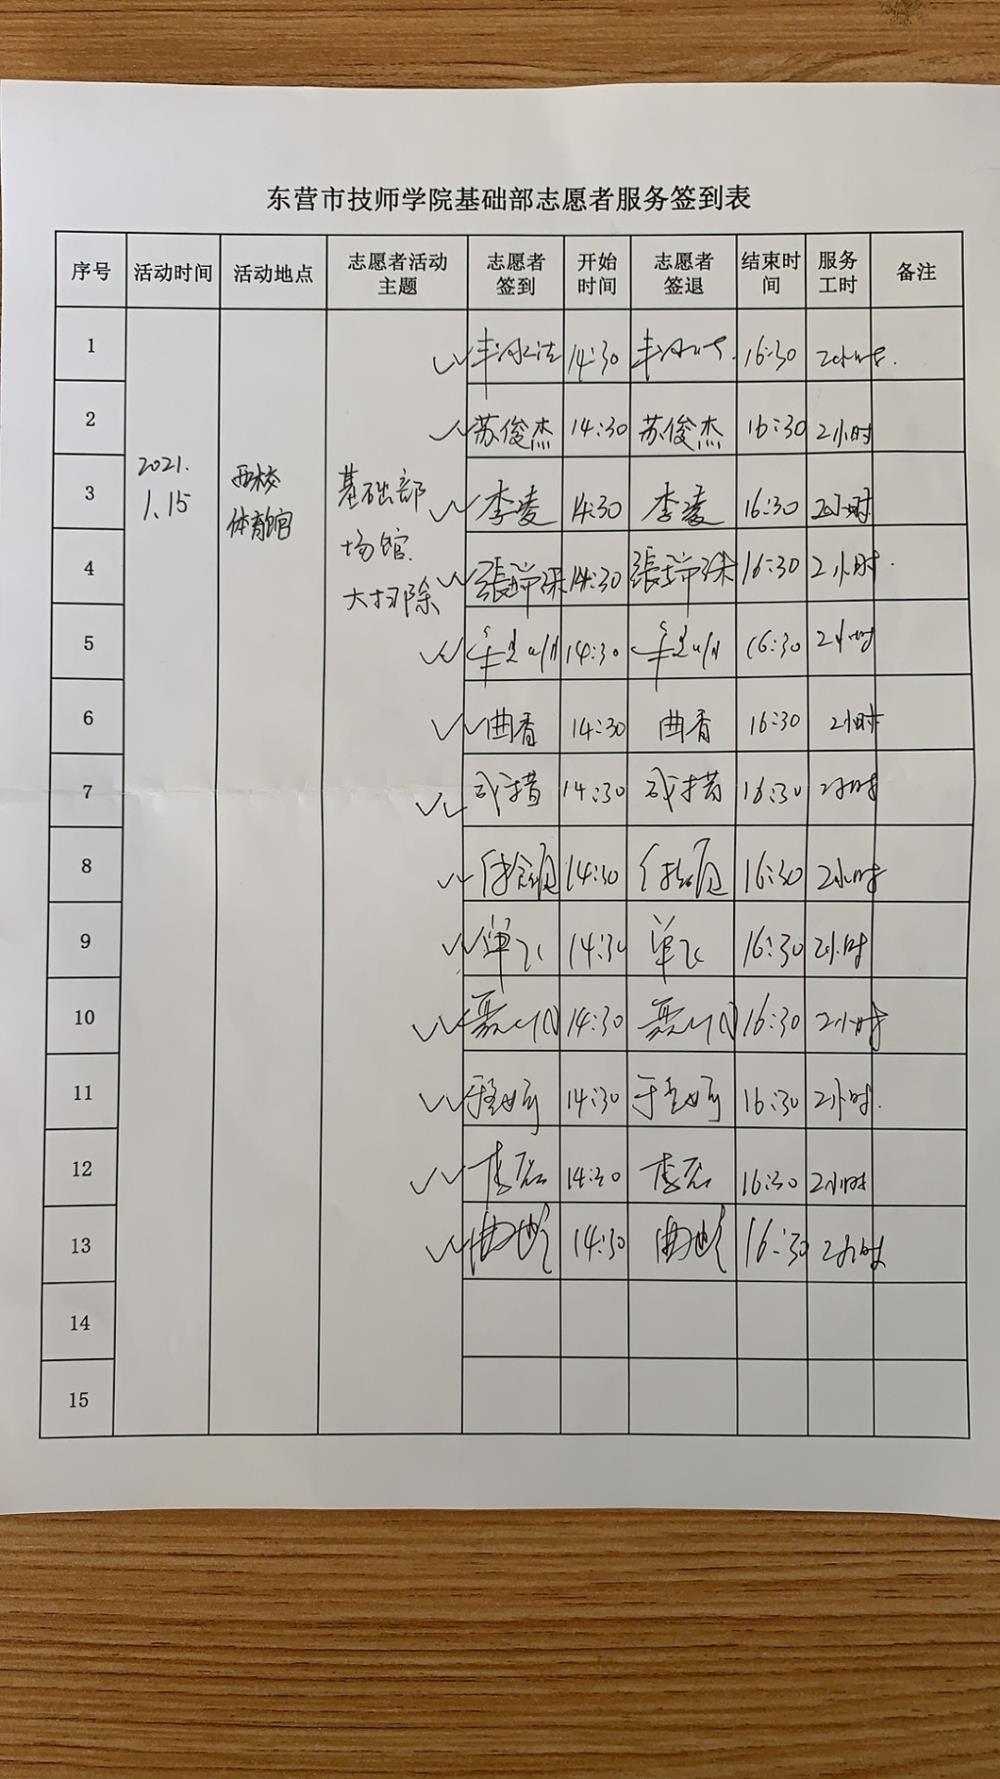 东营市技师学院基础部志愿者服务签到表
序号 活动时间 活动地点 志愿者活动主题 志愿者签到 开始时间 志愿者签退 结束时间 服务工时 备注
2021.1.15 西校体育馆 基础部场馆大扫除
1 14:30 16:30 2小时.
2 苏俊杰 14:30 苏俊杰 16:30 2小时
3 李凌 14:30 李凌 16:30 2小时
4 14:30 16:30 2小时.
5 14:30 16:30 2小时
6 曲香 14:30 曲香 16:30 2小时
7 14:30 16:30 2小时
8 14:30 16:30 2小时
9 单飞 14:30 单飞 16:30 2小时
10 14:30 16:30 2小时
11 14:30 16:30 2小时.
12 14:30 16:30 2小时
13 14:30 16:30 2小时
14
15